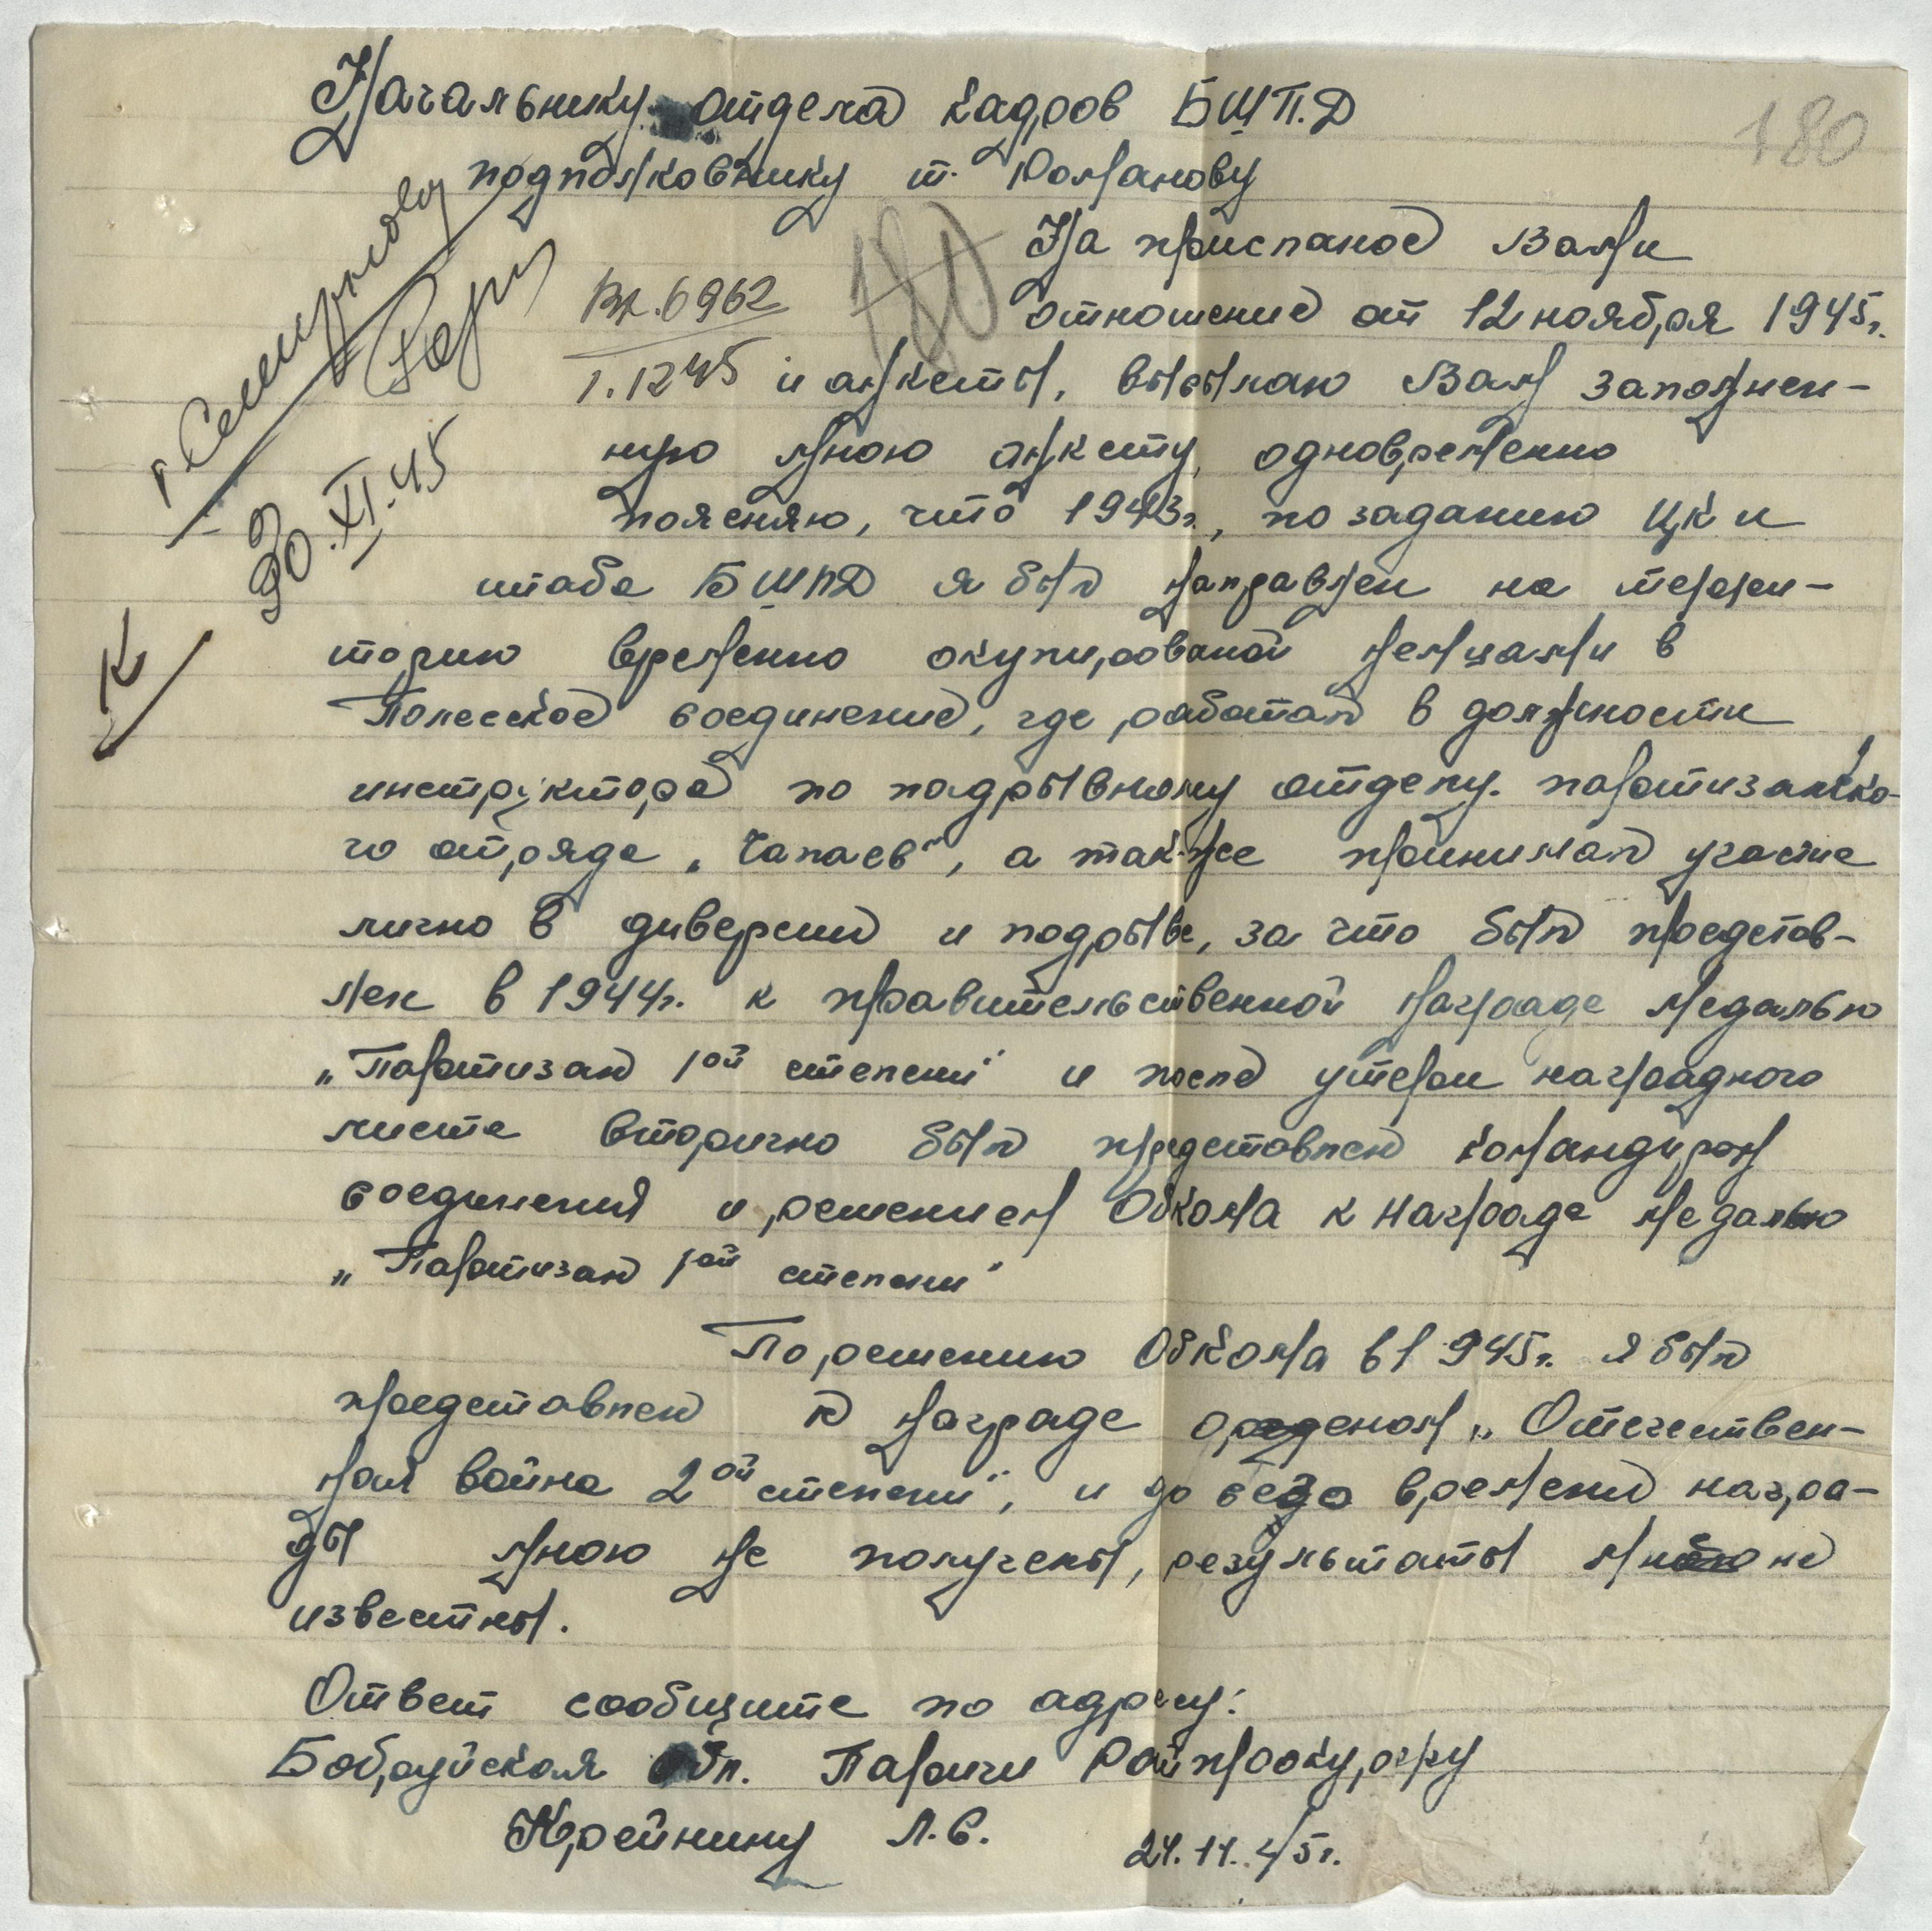 Начальнику отдела кадров БШП.Д
180
подполковнику т. Романову
На приспаное Вами
180
отношение от 12 ноября 1945г.
Вх. 6962
1.12 45
и анкеты, высылаю Вам заполнен-
ную мною анкету, одновременно
поясняю, что 1943г., по заданию ЦК и
штаба БШПД я был направлен на терри-
торию временно окупированой немцами в
Полесское соединение, где работал в должности
инструктора по подрывному отделу. партизанско-
го отряда „Чапаев", а так-же принимал участие
лично в диверсии и подрыве, за что был представ-
лен в 1944г. к правительственной награде медалью
„Партизан 1ой степени" и после утери наградного
листа вторично был представлен командиром
соединения и решением Обкома к награде медалью
„Партизан 1ой степени"
По решению Обкома в 1945г. я был
представлен к награде орденом „Отечествен-
ная война 2ой степени", и до сего времени награ-
ды мною не получены, результаты мне не
известны.
Ответ сообщите по адресу:
Бобруйская Обл. Паричи Райпрокурору
Крейнину Л.С.
24.11.45г.
т. Семирнову
30.XI.45
К